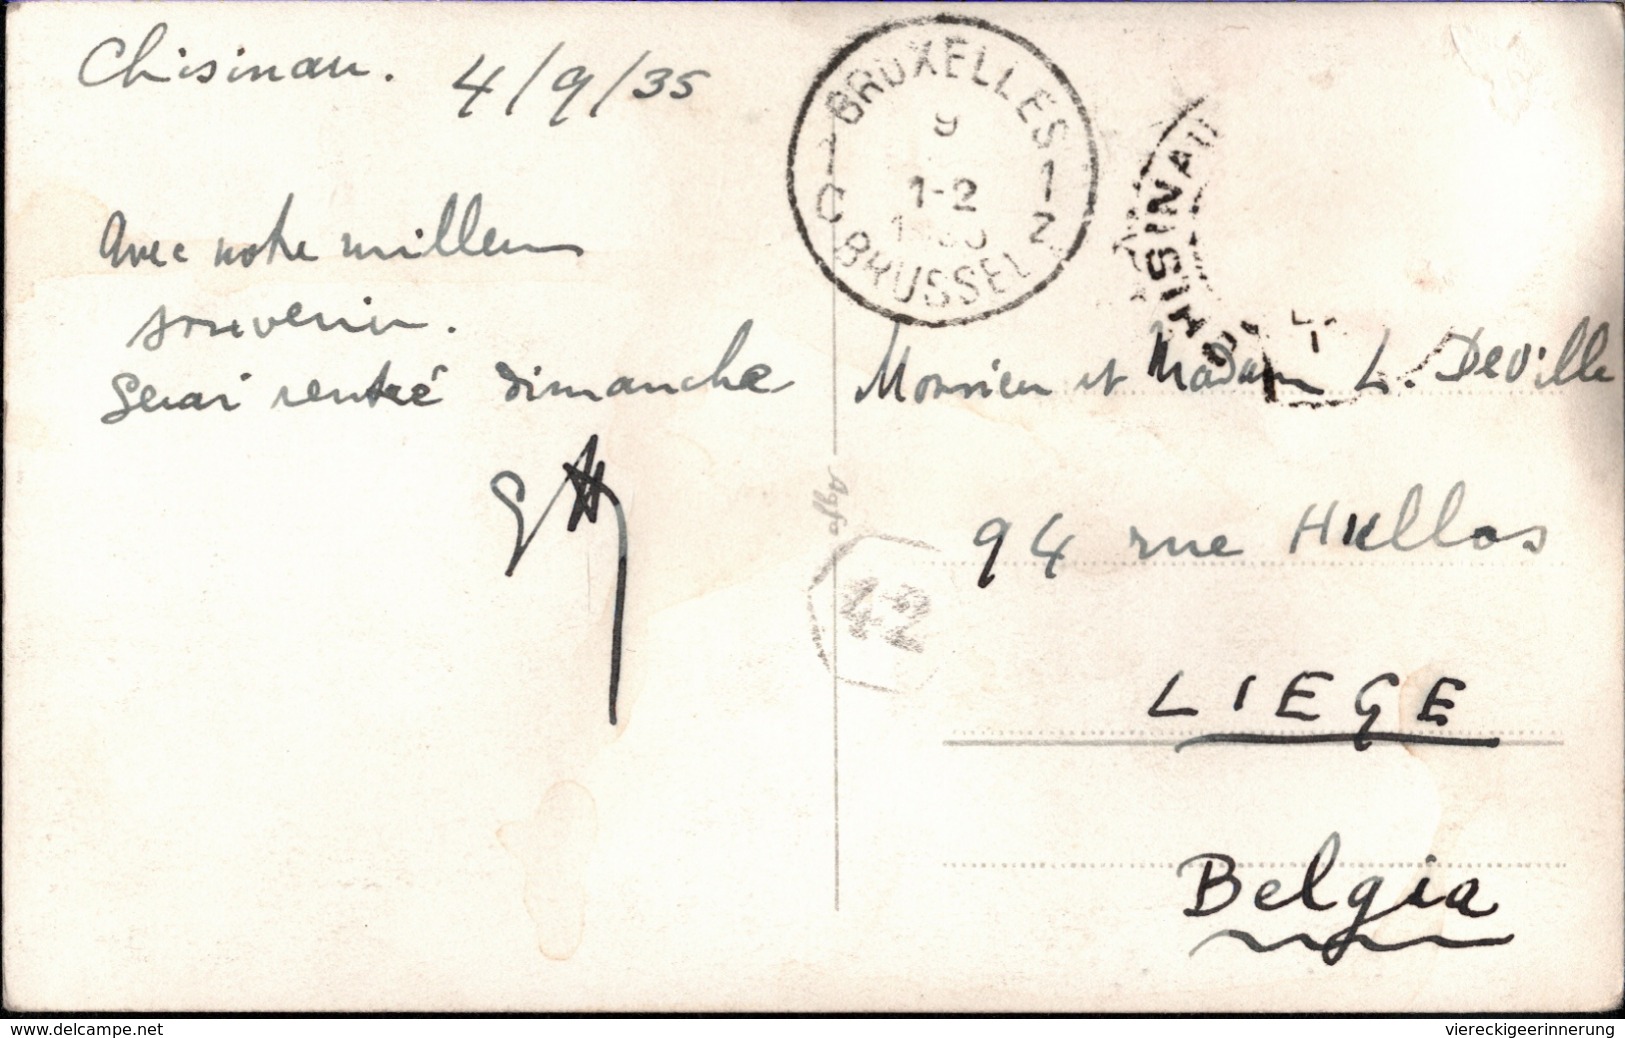 Chisinau. 4/9/35
Avec notre meilleur
souvenir.
Serai rentré dimanche
BRUXELLES
1 9 1
C 1-2 Z
BRUSSEL
CHISINAU
Monsieur et Madame L. Deville
Agfa
94 rue Hullos
42
LIEGE
Belgia
www.delcampe.net
viereckigeerinnerung